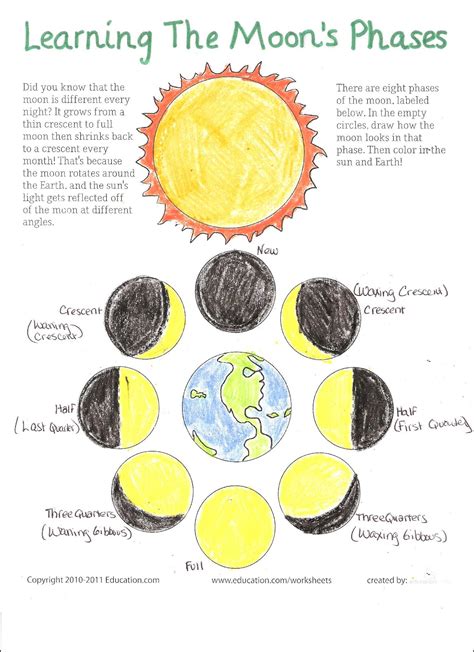 Learning The Moon's Phases
Did you know that the
moon is different every
night? It grows from a
thin crescent to full
moon then shrinks back
to a crescent every
month! That's because
the moon rotates around
the Earth, and the sun's
light gets reflected off
of the moon at different
angles.
There are eight phases
of the moon, labeled
below. In the empty
circles, draw how the
moon looks in that
phase. Then color in the
sun and Earth!
New
Crescent
(Waning
Crescent)
(Waxing Crescent)
Crescent
Half
(Last Quarter)
Half
(First Quarter)
Three Quarters
(Waning Gibbous)
Three Quarters
(Waxing Gibbous)
Full
Copyright 2010-2011 Education.com
www.education.com/worksheets
created by: